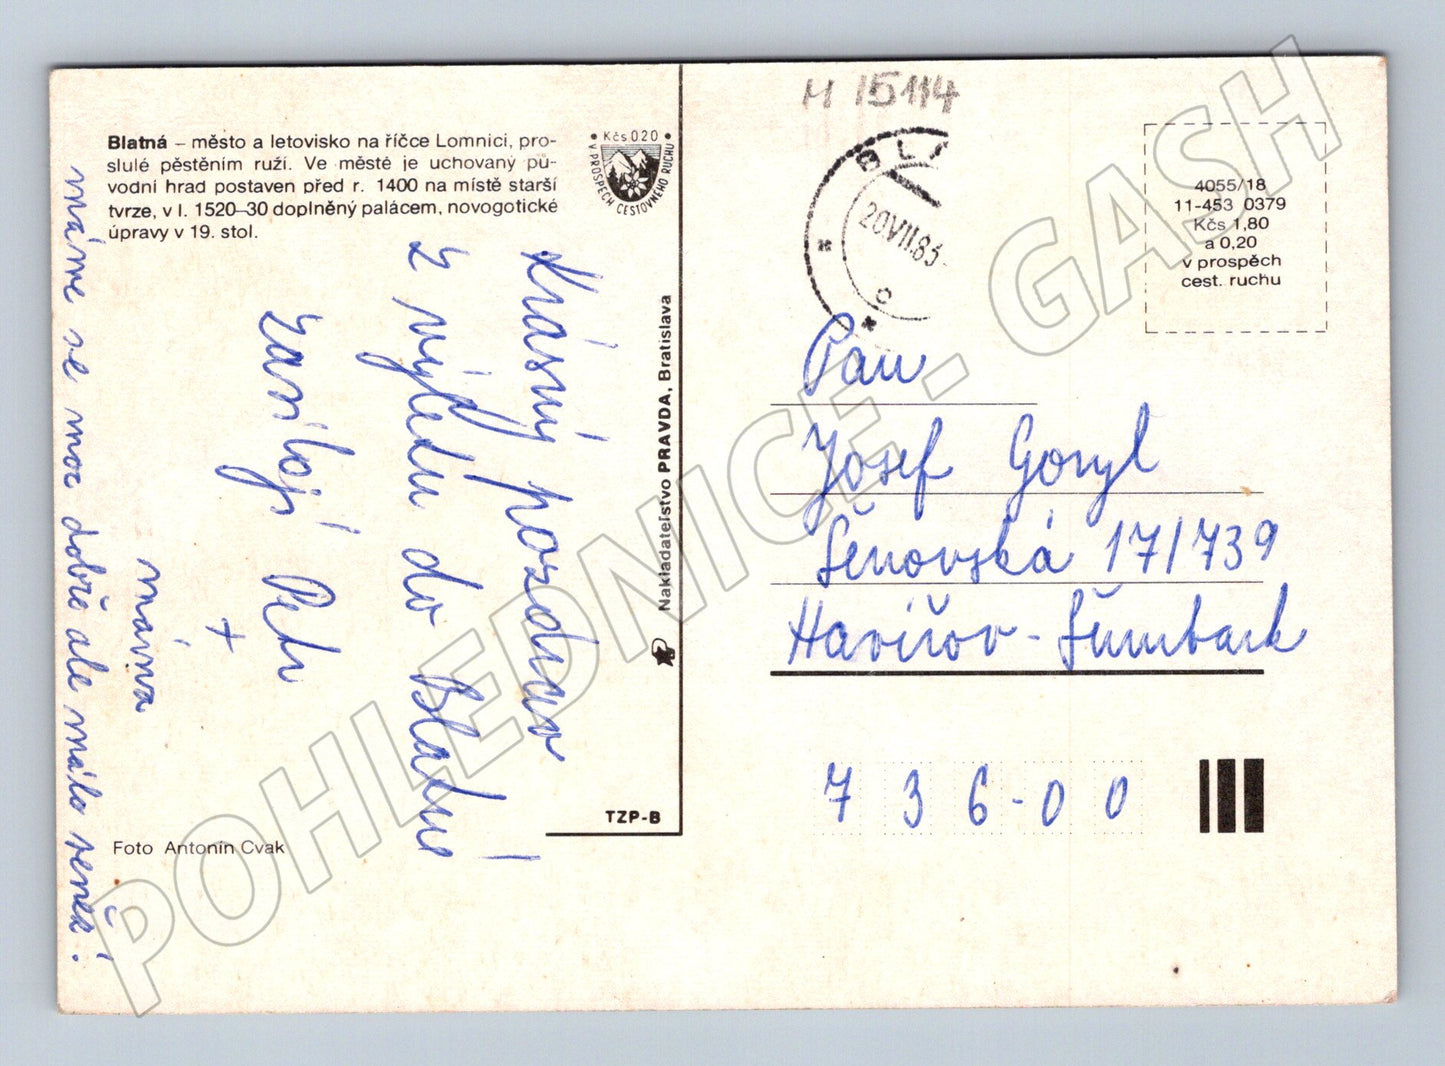 Blatná – město a letovisko na říčce Lomnici, pro-
slulé pěstěním ruží. Ve městě je uchovaný pů-
vodní hrad postaven před r. 1400 na místě starší
tvrze, v l. 1520–30 doplněný palácem, novogotické
úpravy v 19. stol.
Kčs 020
V PROSPĚCH CESTOVNÉHO RUCHU
Krásný pozdrav
z výletu do Blatné!
Zasílají Petr
+
máma
máme se moc dobře ale málo
Foto Antonín Cvak
Nakladateľstvo PRAVDA, Bratislava
TZP-B
M 15114
BLA
20.VII.83
4055/18
11-453 0379
Kčs 1,80
a 0,20
v prospěch
cest. ruchu
Pan
Josef Goryl
Šenovská 17/739
Havířov - Šumbark
736-00
POHLEDNICE - GASH